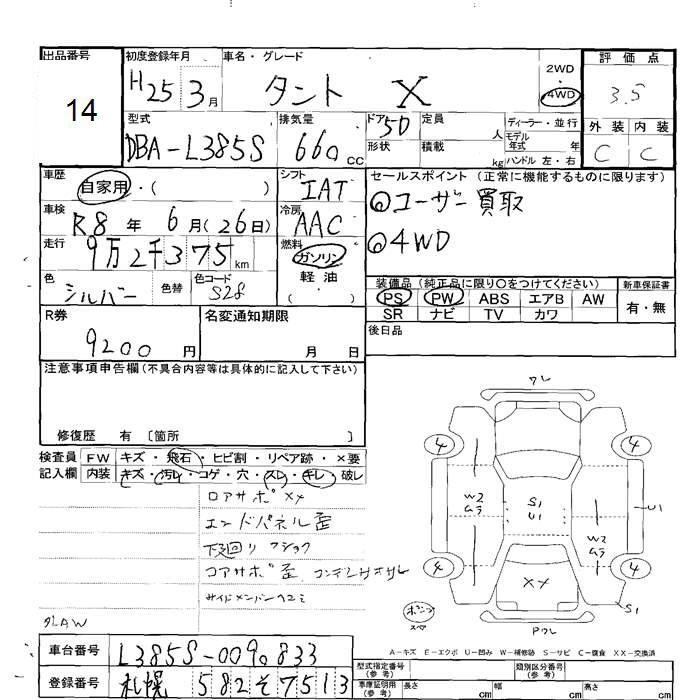 出品番号 初度登録年月 車名・グレード 評価点
14 H25 3月 タント X 2WD 4WD 3.5
型式 排気量 ドア 定員 ディーラー・並行 外装 内装
DBA-L385S 660CC 5D 人 モデル年式 年 C C
形状 積載 kg ハンドル 左・右
車歴 自家用・( ) シフト IAT セールスポイント (正常に機能するものに限ります)
車検 R8年 6月(26日) 冷房 AAC ◎ユーザー買取
走行 9万2千375km 燃料 ガソリン ◎4WD
軽油
( )
色 シルバー 色替 色コード S28 装備品 (純正品に限り○をつけてください) 新車保証書
PS PW ABS エアB AW 有・無
SR ナビ TV カワ
R券 9200円 名変通知期限 月 日 後日品
注意事項申告欄(不具合内容等は具体的に記入して下さい)
修復歴 有 〔箇所 〕
検査員 FW キズ・飛石・ヒビ割・リペア跡・×要
記入欄 内装 キズ・汚レ・コゲ・穴・スレ・キレ・破レ
ロアサポ XX
エンドパネル歪
下廻り フショク
コアサポ歪
サイドメンバーヘコミ
ワレ
4 4
W2 S1 U1 U1
W2
4 4
XX
S1
ワレ
A-キズ E-エクボ U-凹み W-補修跡 S-サビ C-腐食 XX-交換済
車台番号 L385S-0090833 型式指定番号(参考) 類別区分番号(参考)
登録番号 札幌 582そ7513 車庫証明用(参考) 長さ cm 幅 cm 高さ cm